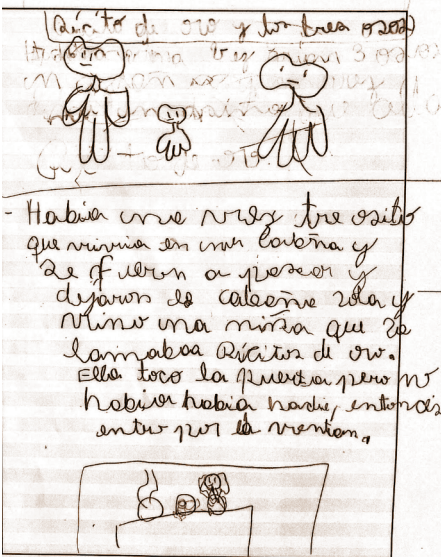 Ricito de oro y los tres osos
- Habia una vez tre osito
que vivia en una cabaña y
se fueron a pasear y
dejaron la cabaña sola y
vino una niña que se
lamabaa Ricitos de oro.
Ella toco la puerta pero no
habia habia nadie, entonces
entro por la ventana.